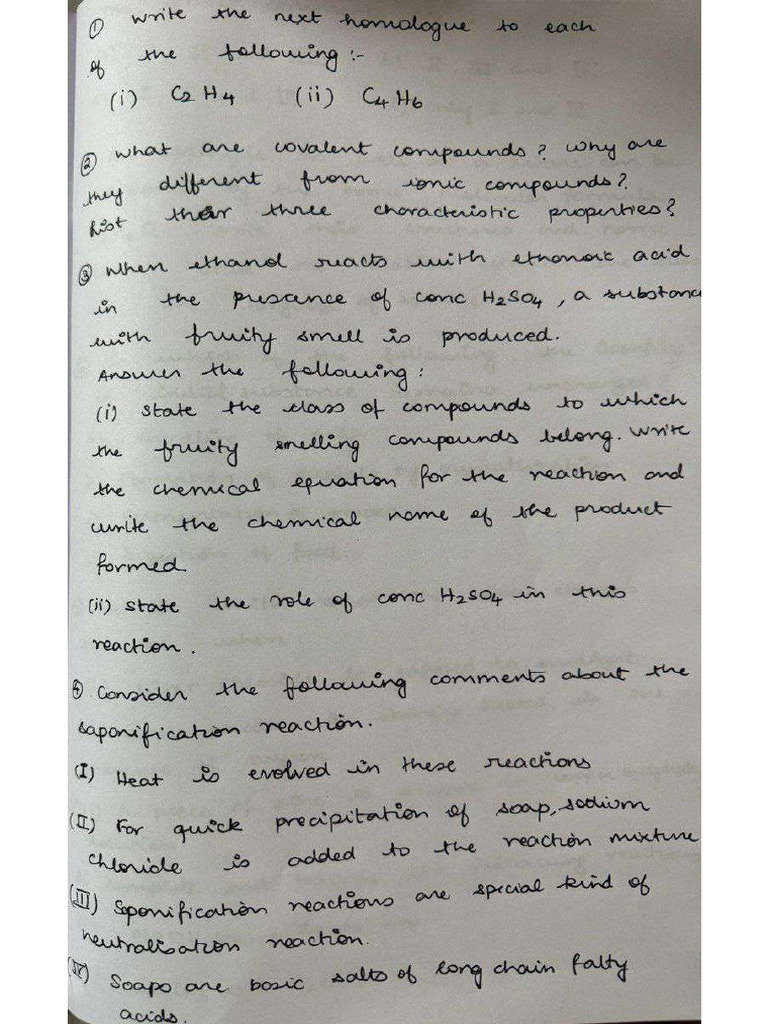 ① Write the next homologue to each
of the following :-
(i) C₂H₄ (ii) C₄H₆
② What are covalent compounds? Why are
they different from ionic compounds?
List their three characteristic properties?
③ When ethanol reacts with ethanoic acid
in the presance of conc H₂SO₄, a substance
with fruity smell is produced.
Answer the following :
(i) State the class of compounds to which
the fruity smelling compounds belong. Write
the chemical equation for the reaction and
write the chemical name of the product
formed.
(ii) State the role of conc H₂SO₄ in this
reaction.
④ Consider the following comments about the
saponification reaction.
(I) Heat is evolved in these reactions
(II) For quick precipitation of soap, sodium
chloride is added to the reaction mixture
(III) Saponification reactions are special kind of
neutralisation reaction.
(IV) Soaps are basic salts of long chain fatty
acids.